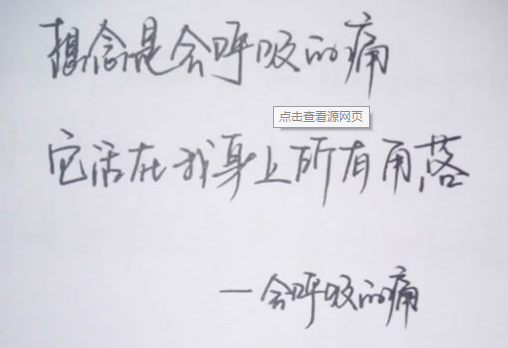 想念是会呼吸的痛
点击查看源网页
它活在我身上所有角落
一会呼吸的痛